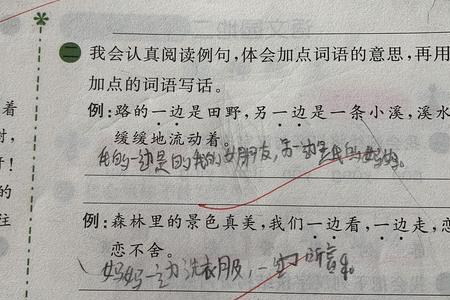 二 我会认真阅读例句,体会加点词语的意思,再用
加点的词语写话。
着 例:路的一边是田野,另一边是一条小溪,溪水
缓缓地流动着。
我的一边是的我的女朋友,另一边是我的妈妈。
的
往 例:森林里的景色真美,我们一边看,一边走,恋
恋不舍。
妈妈一边洗衣服,一边